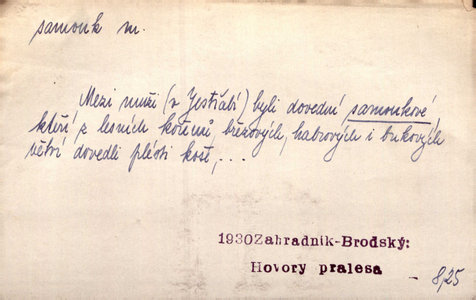 samouk m.
Mezi muži (v Jestřabí) byli dovední samoukové
kteří z lesních kořenů, březových, habrových i bukových
větví dovedli plésti koše,...
1930Zahradník-Brodský:
Hovory pralesa
- 8,25